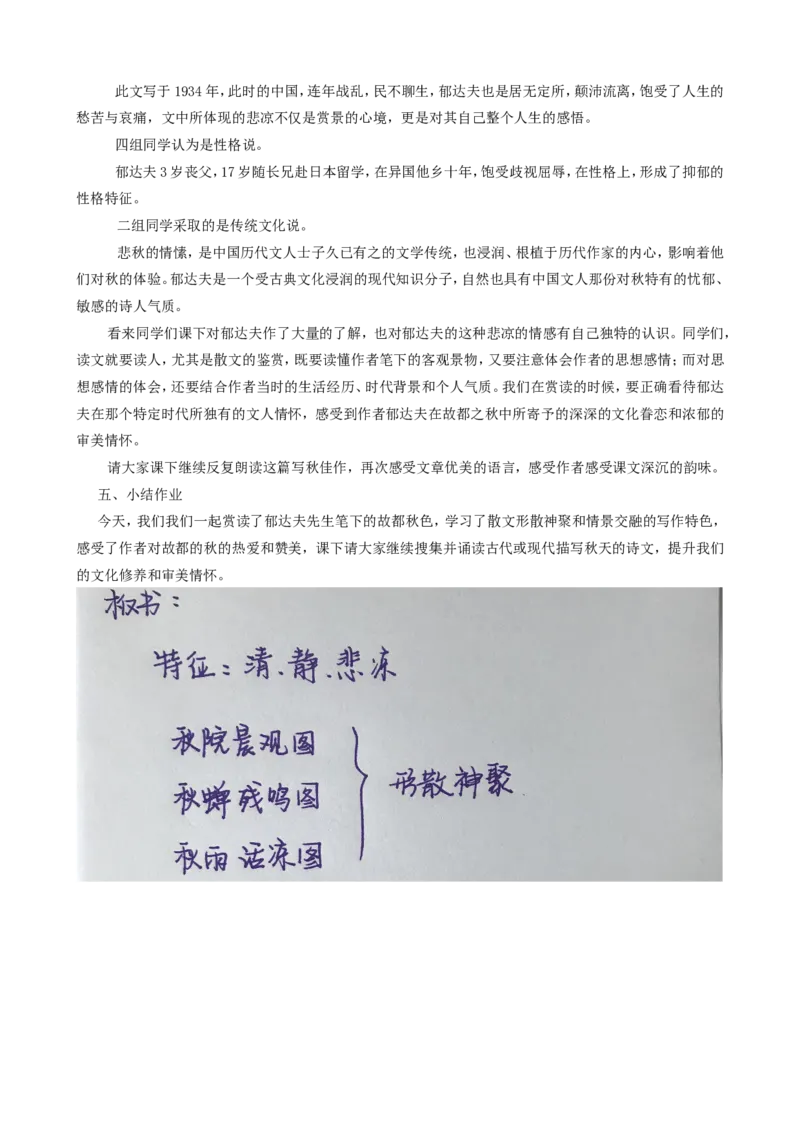 此文写于 1934 年，此时的中国，连年战乱，民不聊生，郁达夫也是居无定所，颠沛流离，饱受了人生的
愁苦与哀痛，文中所体现的悲凉不仅是赏景的心境，更是对其自己整个人生的感悟。
四组同学认为是性格说。
郁达夫 3 岁丧父，17 岁随长兄赴日本留学，在异国他乡十年，饱受歧视屈辱，在性格上，形成了抑郁的
性格特征。
二组同学采取的是传统文化说。
悲秋的情愫，是中国历代文人士子久已有之的文学传统，也浸润、根植于历代作家的内心，影响着他
们对秋的体验。郁达夫是一个受古典文化浸润的现代知识分子，自然也具有中国文人那份对秋特有的忧郁、
敏感的诗人气质。
看来同学们课下对郁达夫作了大量的了解，也对郁达夫的这种悲凉的情感有自己独特的认识。同学们，
读文就要读人，尤其是散文的鉴赏，既要读懂作者笔下的客观景物，又要注意体会作者的思想感情；而对思
想感情的体会，还要结合作者当时的生活经历、时代背景和个人气质。我们在赏读的时候，要正确看待郁达
夫在那个特定时代所独有的文人情怀，感受到作者郁达夫在故都之秋中所寄予的深深的文化眷恋和浓郁的
审美情怀。
请大家课下继续反复朗读这篇写秋佳作，再次感受文章优美的语言，感受作者感受课文深沉的韵味。
五、小结作业
今天，我们我们一起赏读了郁达夫先生笔下的故都秋色，学习了散文形散神聚和情景交融的写作特色，
感受了作者对故都的秋的热爱和赞美，课下请大家继续搜集并诵读古代或现代描写秋天的诗文，提升我们
的文化修养和审美情怀。
板书：
特征：清、静、悲凉
秋院晨观图
秋蝉残鸣图
秋雨话凉图
形散神聚